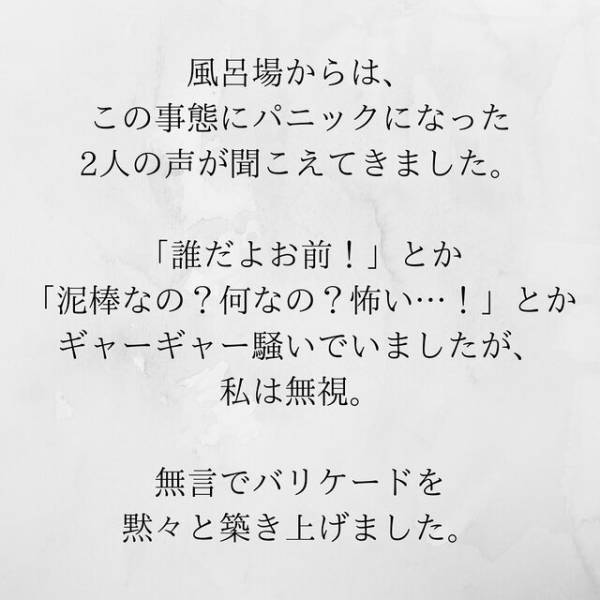 風呂場からは、
この事態にパニックになった
2人の声が聞こえてきました。
「誰だよお前！」とか
「泥棒なの？何なの？怖い…！」とか
ギャーギャー騒いでいましたが、
私は無視。
無言でバリケードを
黙々と築き上げました。